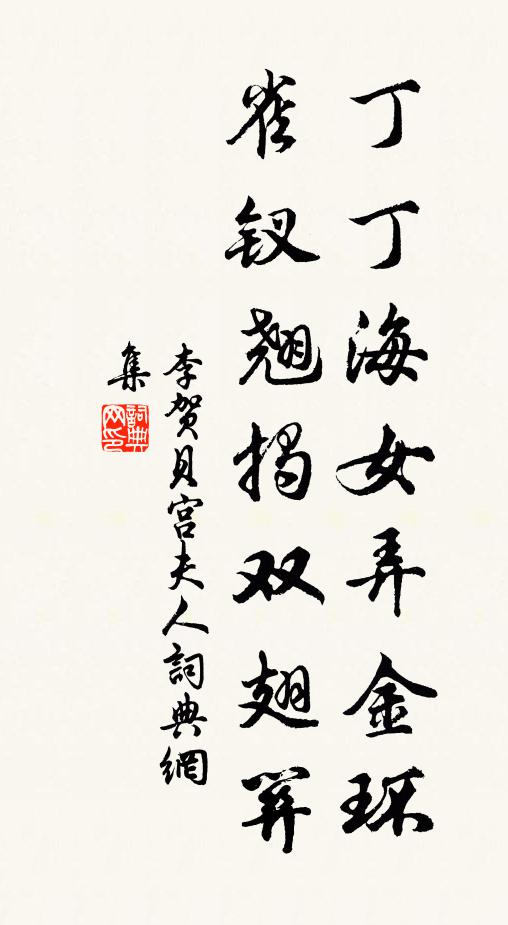 丁丁海女弄金环
雀钗翘揭双翅關
李贺贝宫夫人詞典網
集
詞典网印